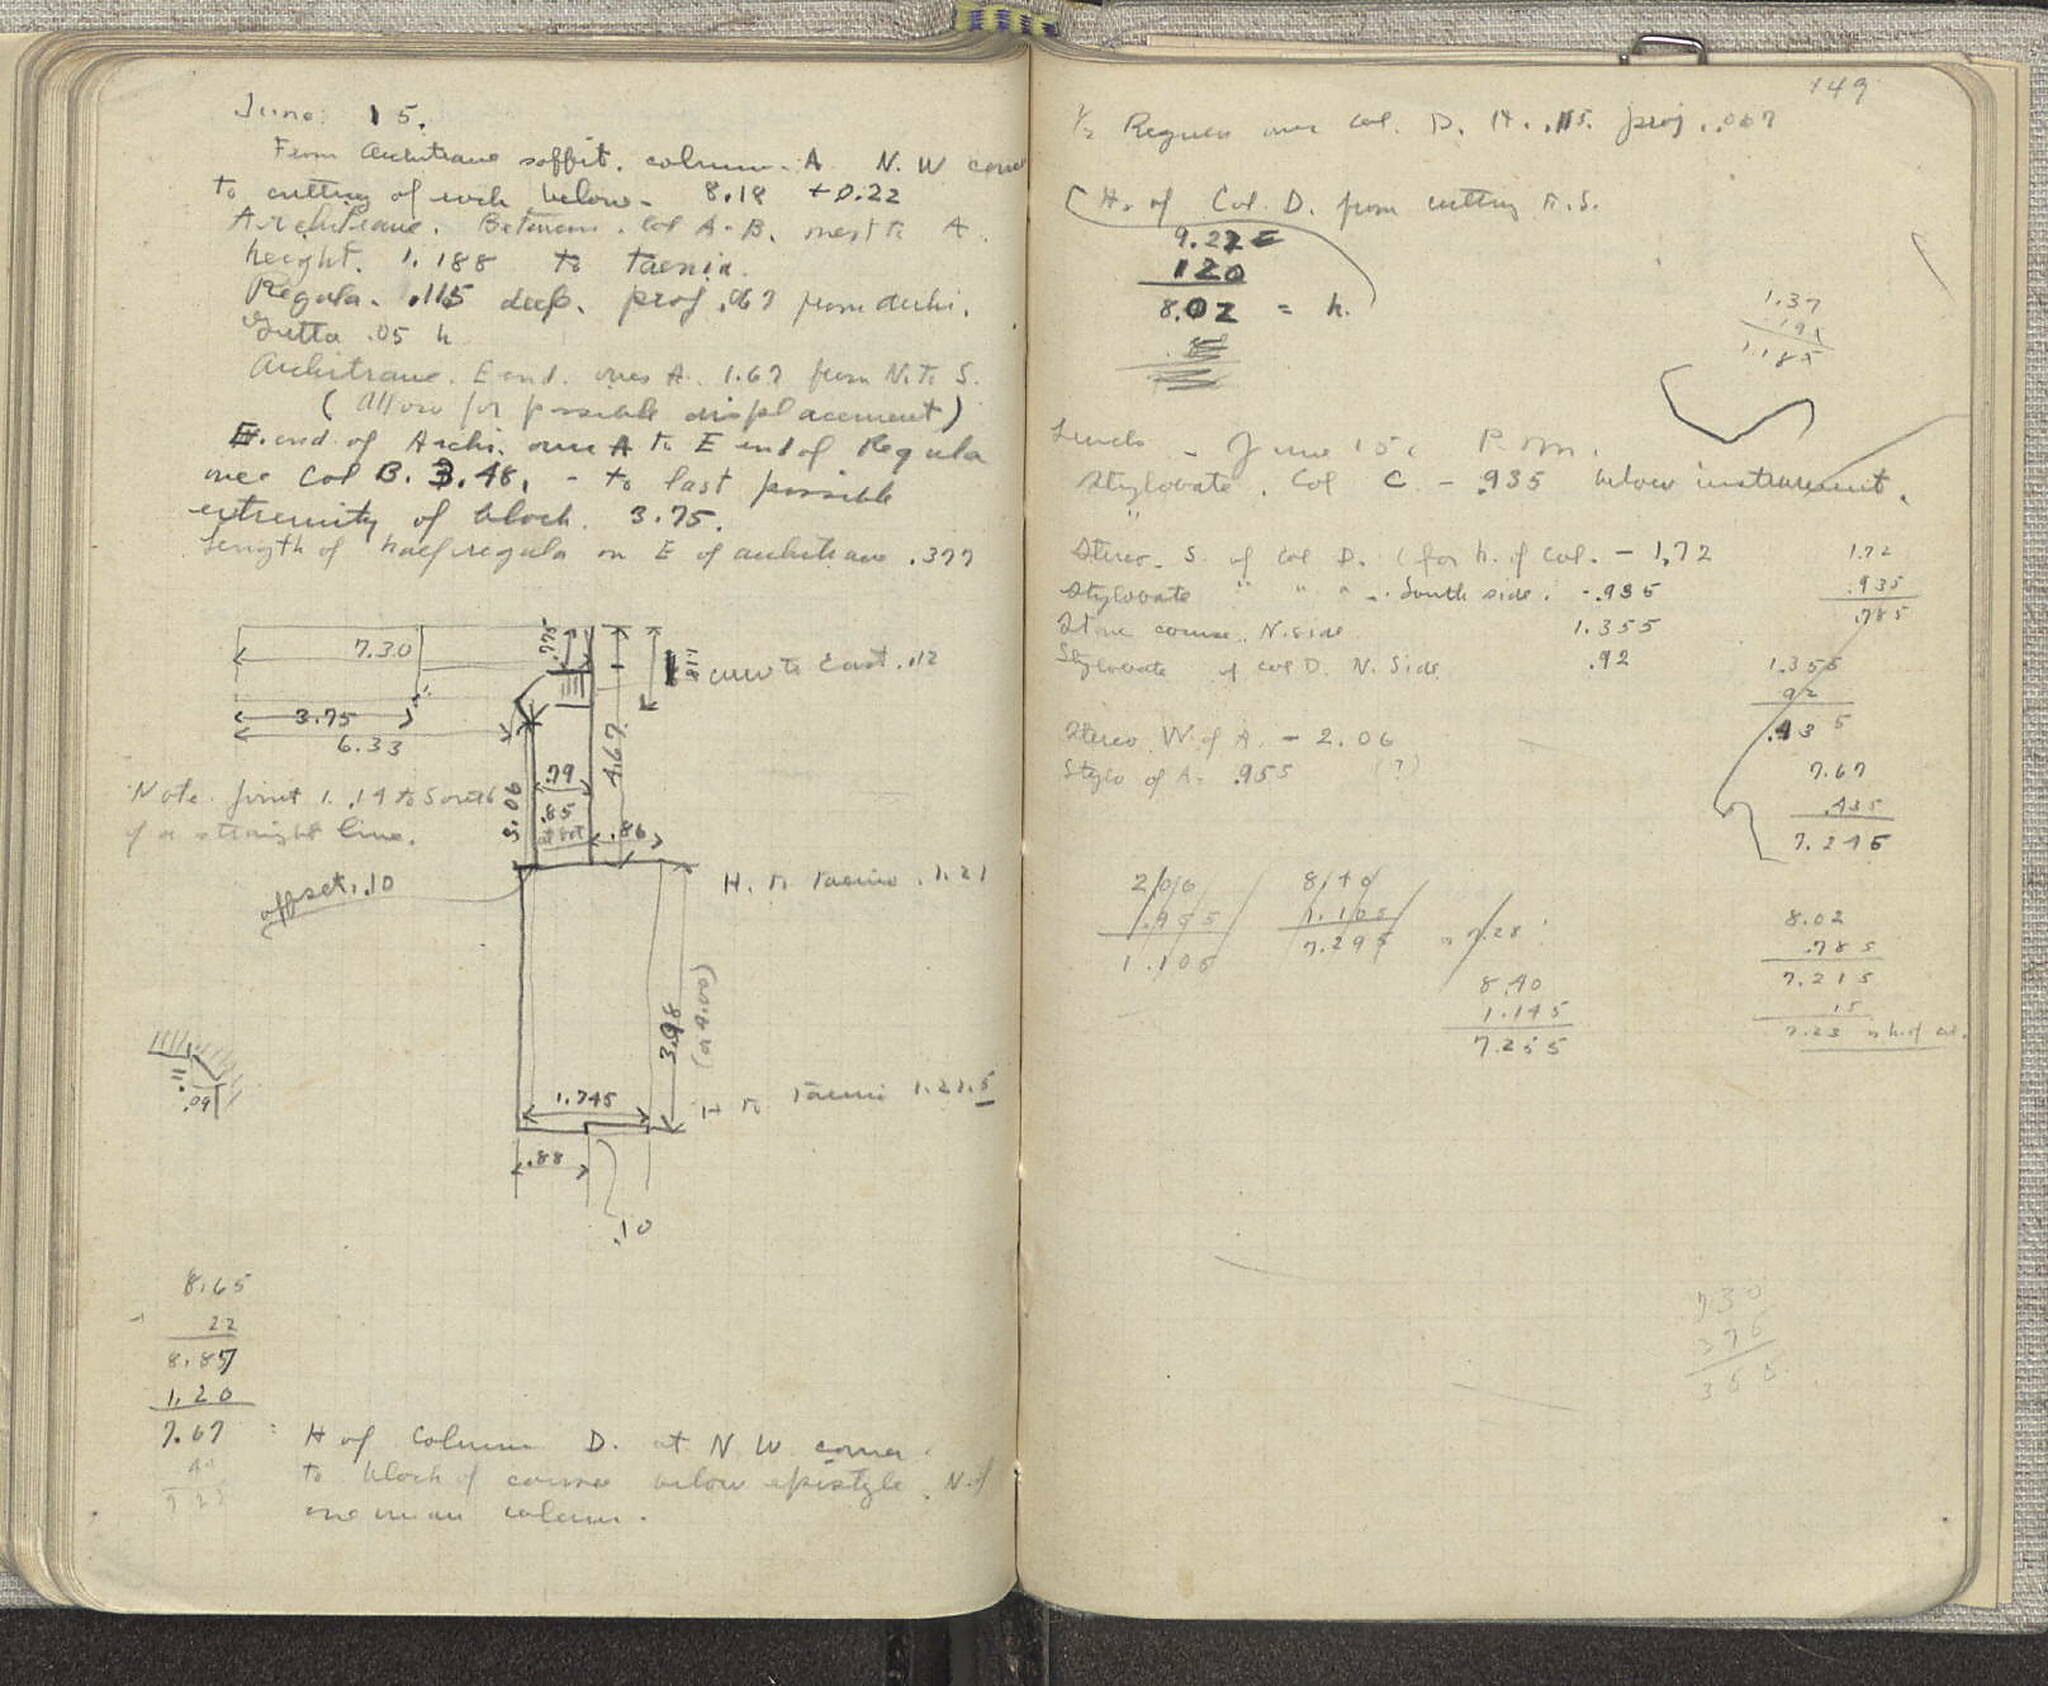 June 15.
From Architrave soffit. column. A N.W corner
to cutting of rock below - 8.18 +0.22
Architrave. Between. Col A-B. next to A.
height. 1.188 to taenia.
Regula. .115 deep. proj .067 from archi.
Gutta .05 h
Architrave. E end. over A. 1.67 from N. to S.
(Allow for possible displacement)
E. end of Archi. over A to E end of Regula
over Col B. 3.48. - to last possible
extremity of block. 3.75.
Length of half regula on E of architrave .377
7.30
.775
3.75
6.33
4.67
1.18
to East. .12
.79
.85
at bot
.86
3.06
Note. joint 1. .14 to South
of a straight line.
offset. .10
H. to Taenia. 1.21
3.98
(or 4.00)
.09
1.745
H to Taenia 1.21.5
.88
.10
8.65
22
8.87
1.20
7.67 = H of Column D. at N W corner
to block of course below epistyle. N. of
column.
149
1/2 Regula over Col. D. H. .115. proj. .067
H. of Col. D. from cutting
9.22
120
8.02 = h.
1.37
1.185
Levels - June 15. P.M.
Stylobate. Col C - .935 below instrument.
Stereo. S. of Col D. (for h. of Col. - 1.72
Stylobate " " " South side. - .935
Stone course. N. side. 1.355
Stylobate of Col D. N. Side .92
1.72
.935
.785
1.355
92
.435
Stereo W. of A. - 2.06
Stylo of A - .955 (?)
7.67
.435
7.245
2.06
.955
1.105
8.40
1.105
7.295
7.28
8.40
1.145
7.255
8.02
.785
7.215
15
7.23 = h. of col.
730
376
355